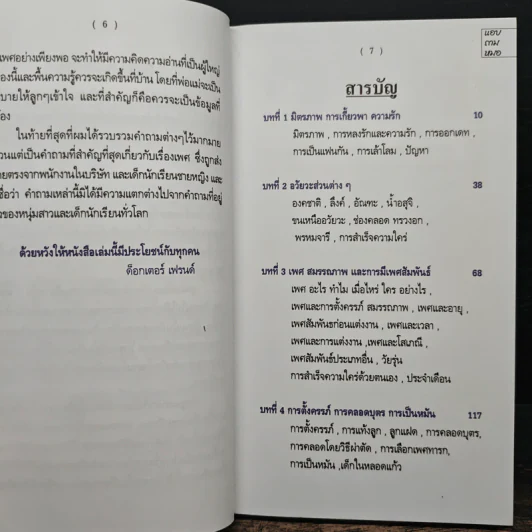 ( 6 )
เพศอย่างเพียงพอ จะทำให้มีความคิดความอ่านที่เป็นผู้ใหญ่
องนี้และพื้นความรู้ควรจะเกิดขึ้นที่บ้าน โดยที่พ่อแม่จะเป็น
บายให้ลูกๆเข้าใจ และที่สำคัญก็คือควรจะเป็นข้อมูลที่
ง
ในท้ายที่สุดที่ผมได้รวบรวมคำถามต่างๆไว้มากมาย
วนแต่เป็นคำถามที่สำคัญที่สุดเกี่ยวกับเรื่องเพศ ซึ่งถูกส่ง
ยตรงจากพนักงานในบริษัท และเด็กนักเรียนชายหญิง และ
ชื่อว่า คำถามเหล่านี้มิได้มีความแตกต่างไปจากคำถามที่อยู่
ของหนุ่มสาวและเด็กนักเรียนทั่วโลก
ด้วยหวังให้หนังสือเล่มนี้มีประโยชน์กับทุกคน
ด็อกเตอร์ เฟรนด์
แอบ
ถาม
หมอ
( 7 )
สารบัญ
บทที่ 1 มิตรภาพ การเกี้ยวพา ความรัก 10
มิตรภาพ , การหลงรักและความรัก , การออกเดท ,
การเป็นแฟนกัน , การเล้าโลม , ปัญหา
บทที่ 2 อวัยวะส่วนต่าง ๆ 38
องคชาติ , ลึงค์ , อัณฑะ , น้ำอสุจิ ,
ขนเหนืออวัยวะ , ช่องคลอด ทรวงอก ,
พรหมจารี , การสำเร็จความใคร่
บทที่ 3 เพศ สมรรถภาพ และการมีเพศสัมพันธ์ 68
เพศ อะไร ทำไม เมื่อไหร่ ใคร อย่างไร ,
เพศและการตั้งครรภ์ สมรรถภาพ , เพศและอายุ ,
เพศสัมพันธ์ก่อนแต่งงาน , เพศและเวลา ,
เพศและการแต่งงาน ,เพศและโสเภณี ,
เพศสัมพันธ์ประเภทอื่น , วัยรุ่น
การสำเร็จความใคร่ด้วยตนเอง , ประจำเดือน
บทที่ 4 การตั้งครรภ์ การคลอดบุตร การเป็นหมัน 117
การตั้งครรภ์ , การแท้งลูก , ลูกแฝด , การคลอดบุตร,
การคลอดโดยวิธีผ่าตัด , การเลือกเพศทารก,
การเป็นหมัน ,เด็กในหลอดแก้ว